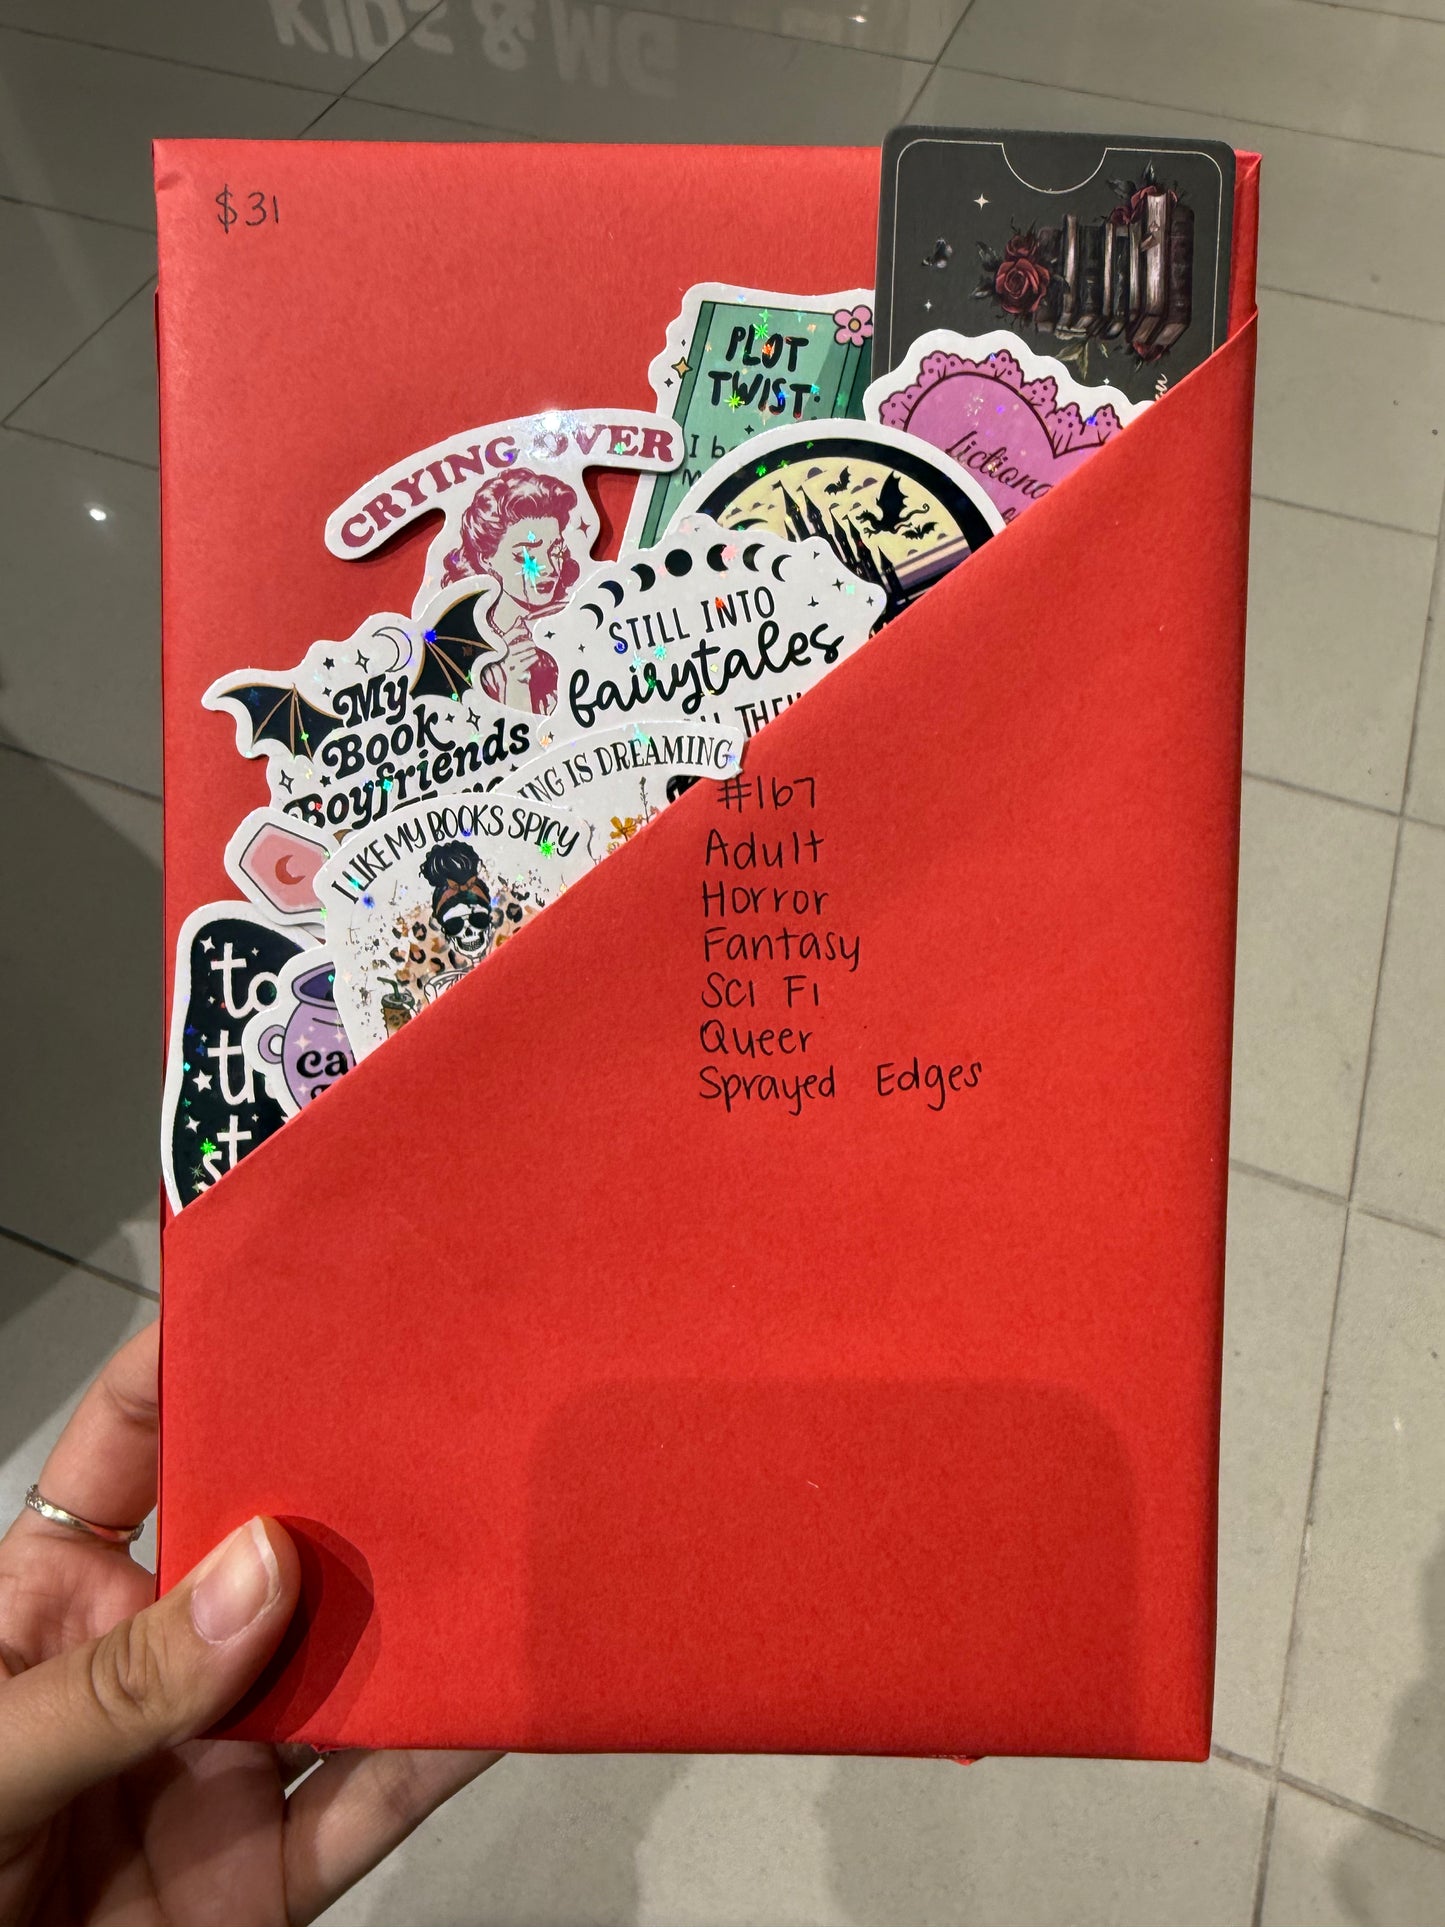 KIDS & 
$31
PLOT
TWIST:
I
CRYING OVER
fictiona
STILL INTO
fairytales
My
Book
Boyfriends
ING IS DREAMING
I LIKE MY BOOKS SPICY
to
ca
st
#167
Adult
Horror
Fantasy
Sci Fi
Queer
Sprayed Edges